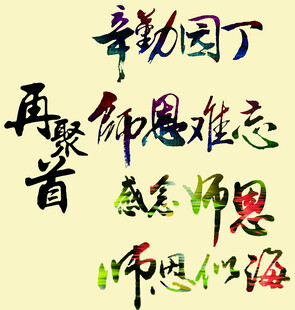 辛勤园丁
再聚首
師恩难忘
感念师恩
师恩似海